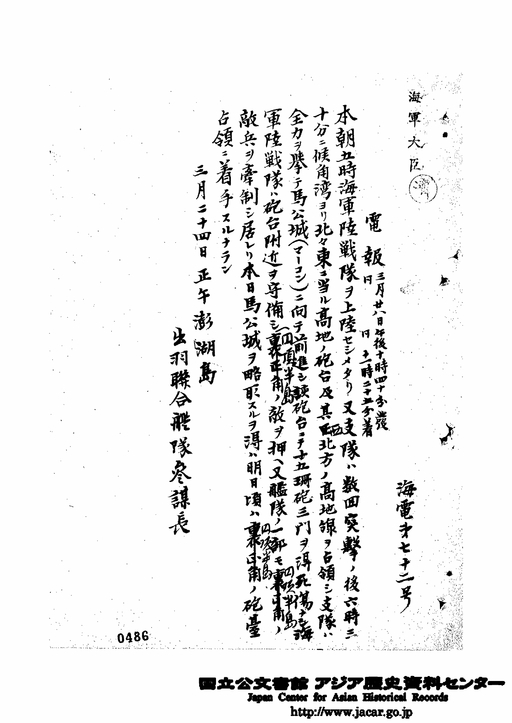 海軍大臣
電報 三月廿八日午後十時四十分發
日 十一時二十五分着
海電第七十二号
本朝五時海軍陸戦隊ヲ上陸セシメタリ又支隊ハ数回突撃ノ後六時三
十分ニ候角湾ヨリ北々東ニ当ル高地ノ砲台及其西北方ノ高地線ヲ占領シ支隊ハ
全力ヲ挙テ馬公城(マーコン)ニ向テ前進シ該砲台ニテ十五珊砲三門ヲ得死傷ナシ海
軍陸戦隊ハ砲台附近ヲ守備シ裏正角(円頂半島)ノ敵ヲ押ヘ又艦隊ノ一部モ裏正角ノ
円頂半島
敵兵ヲ牽制シ居レリ本日馬公城ヲ略取スルヲ得ハ明日頃ハ裏正角ノ砲臺
円頂半島
占領ニ着手スルナラン
三月二十四日正午澎湖島
出羽聯合艦隊参謀長
0486
国立公文書館 アジア歴史資料センター
Japan Center for Asian Historical Records
http://www.jacar.go.jp